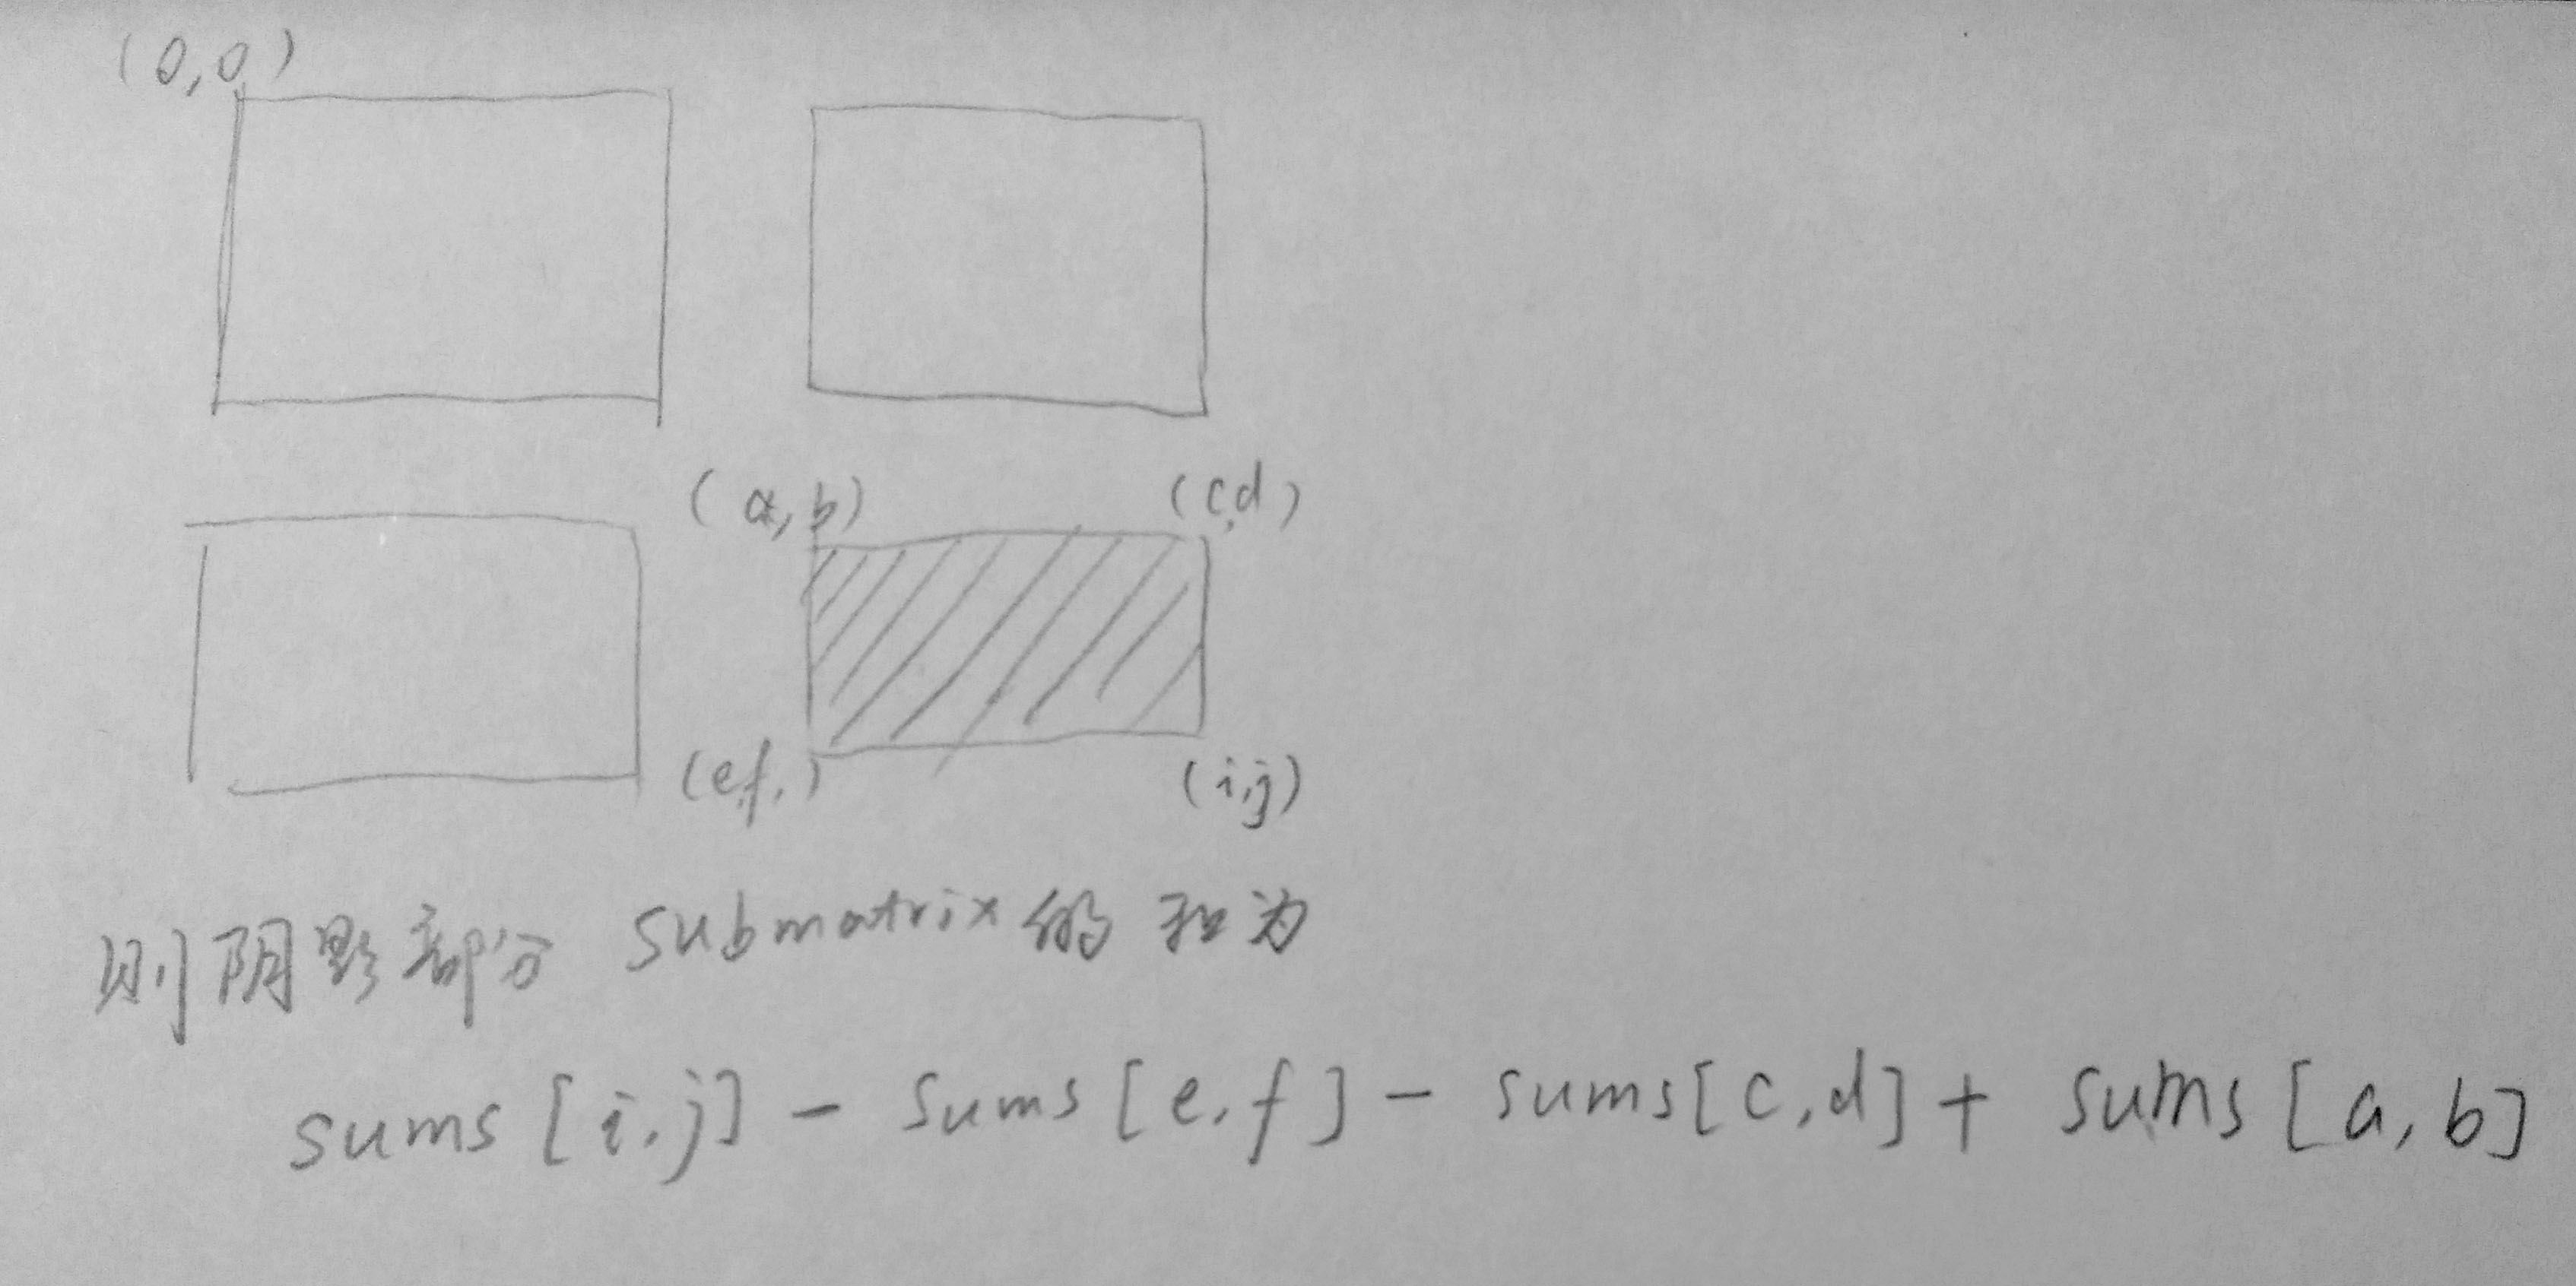 (0,0)
(a,b) (c,d)
(e,f,) (i,j)
则阴影部分 submatrix 的和为
sums [i,j] - sums [e,f] - sums[c,d] + sums [a,b]